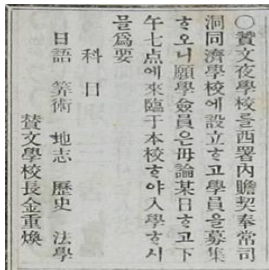 ○贊文夜學校를西署內贍契奉常司
洞同濟學校에設立ᄒᆞ고學員을募集
ᄒᆞ오니願學僉員은毋論某日ᄒᆞ고下
午七点에來臨于本校ᄒᆞ야入學ᄒᆞ시
믈爲要
科目
日語 筭術 地志 歷史 法學
贊文學校長金重煥